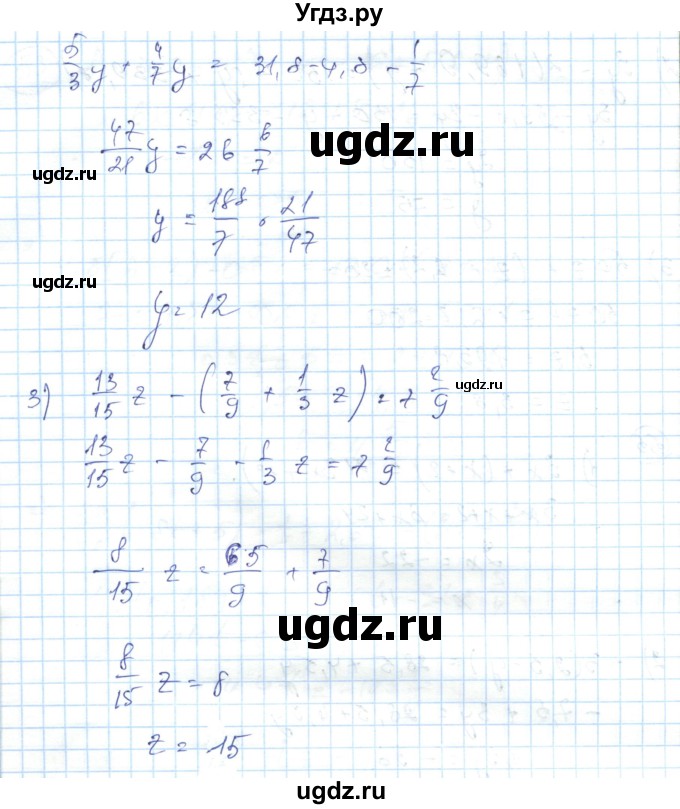 Угдз.ру
5/3 y + 4/7 y = 31,8 - 4,8 - 1/7
47/21 y = 26 6/7
ugdz.ru
ugdz.ru
y = 188/7 · 21/47
ugdz.ru
y = 12
3) 13/15 z - (7/9 + 1/3 z) = 7 2/9
ugdz.ru
13/15 z - 7/9 - 1/3 z = 7 2/9
8/15 z = 65/9 + 7/9
ugdz.ru
8/15 z = 8
z = 15
ugdz.ru
ugdz.ru